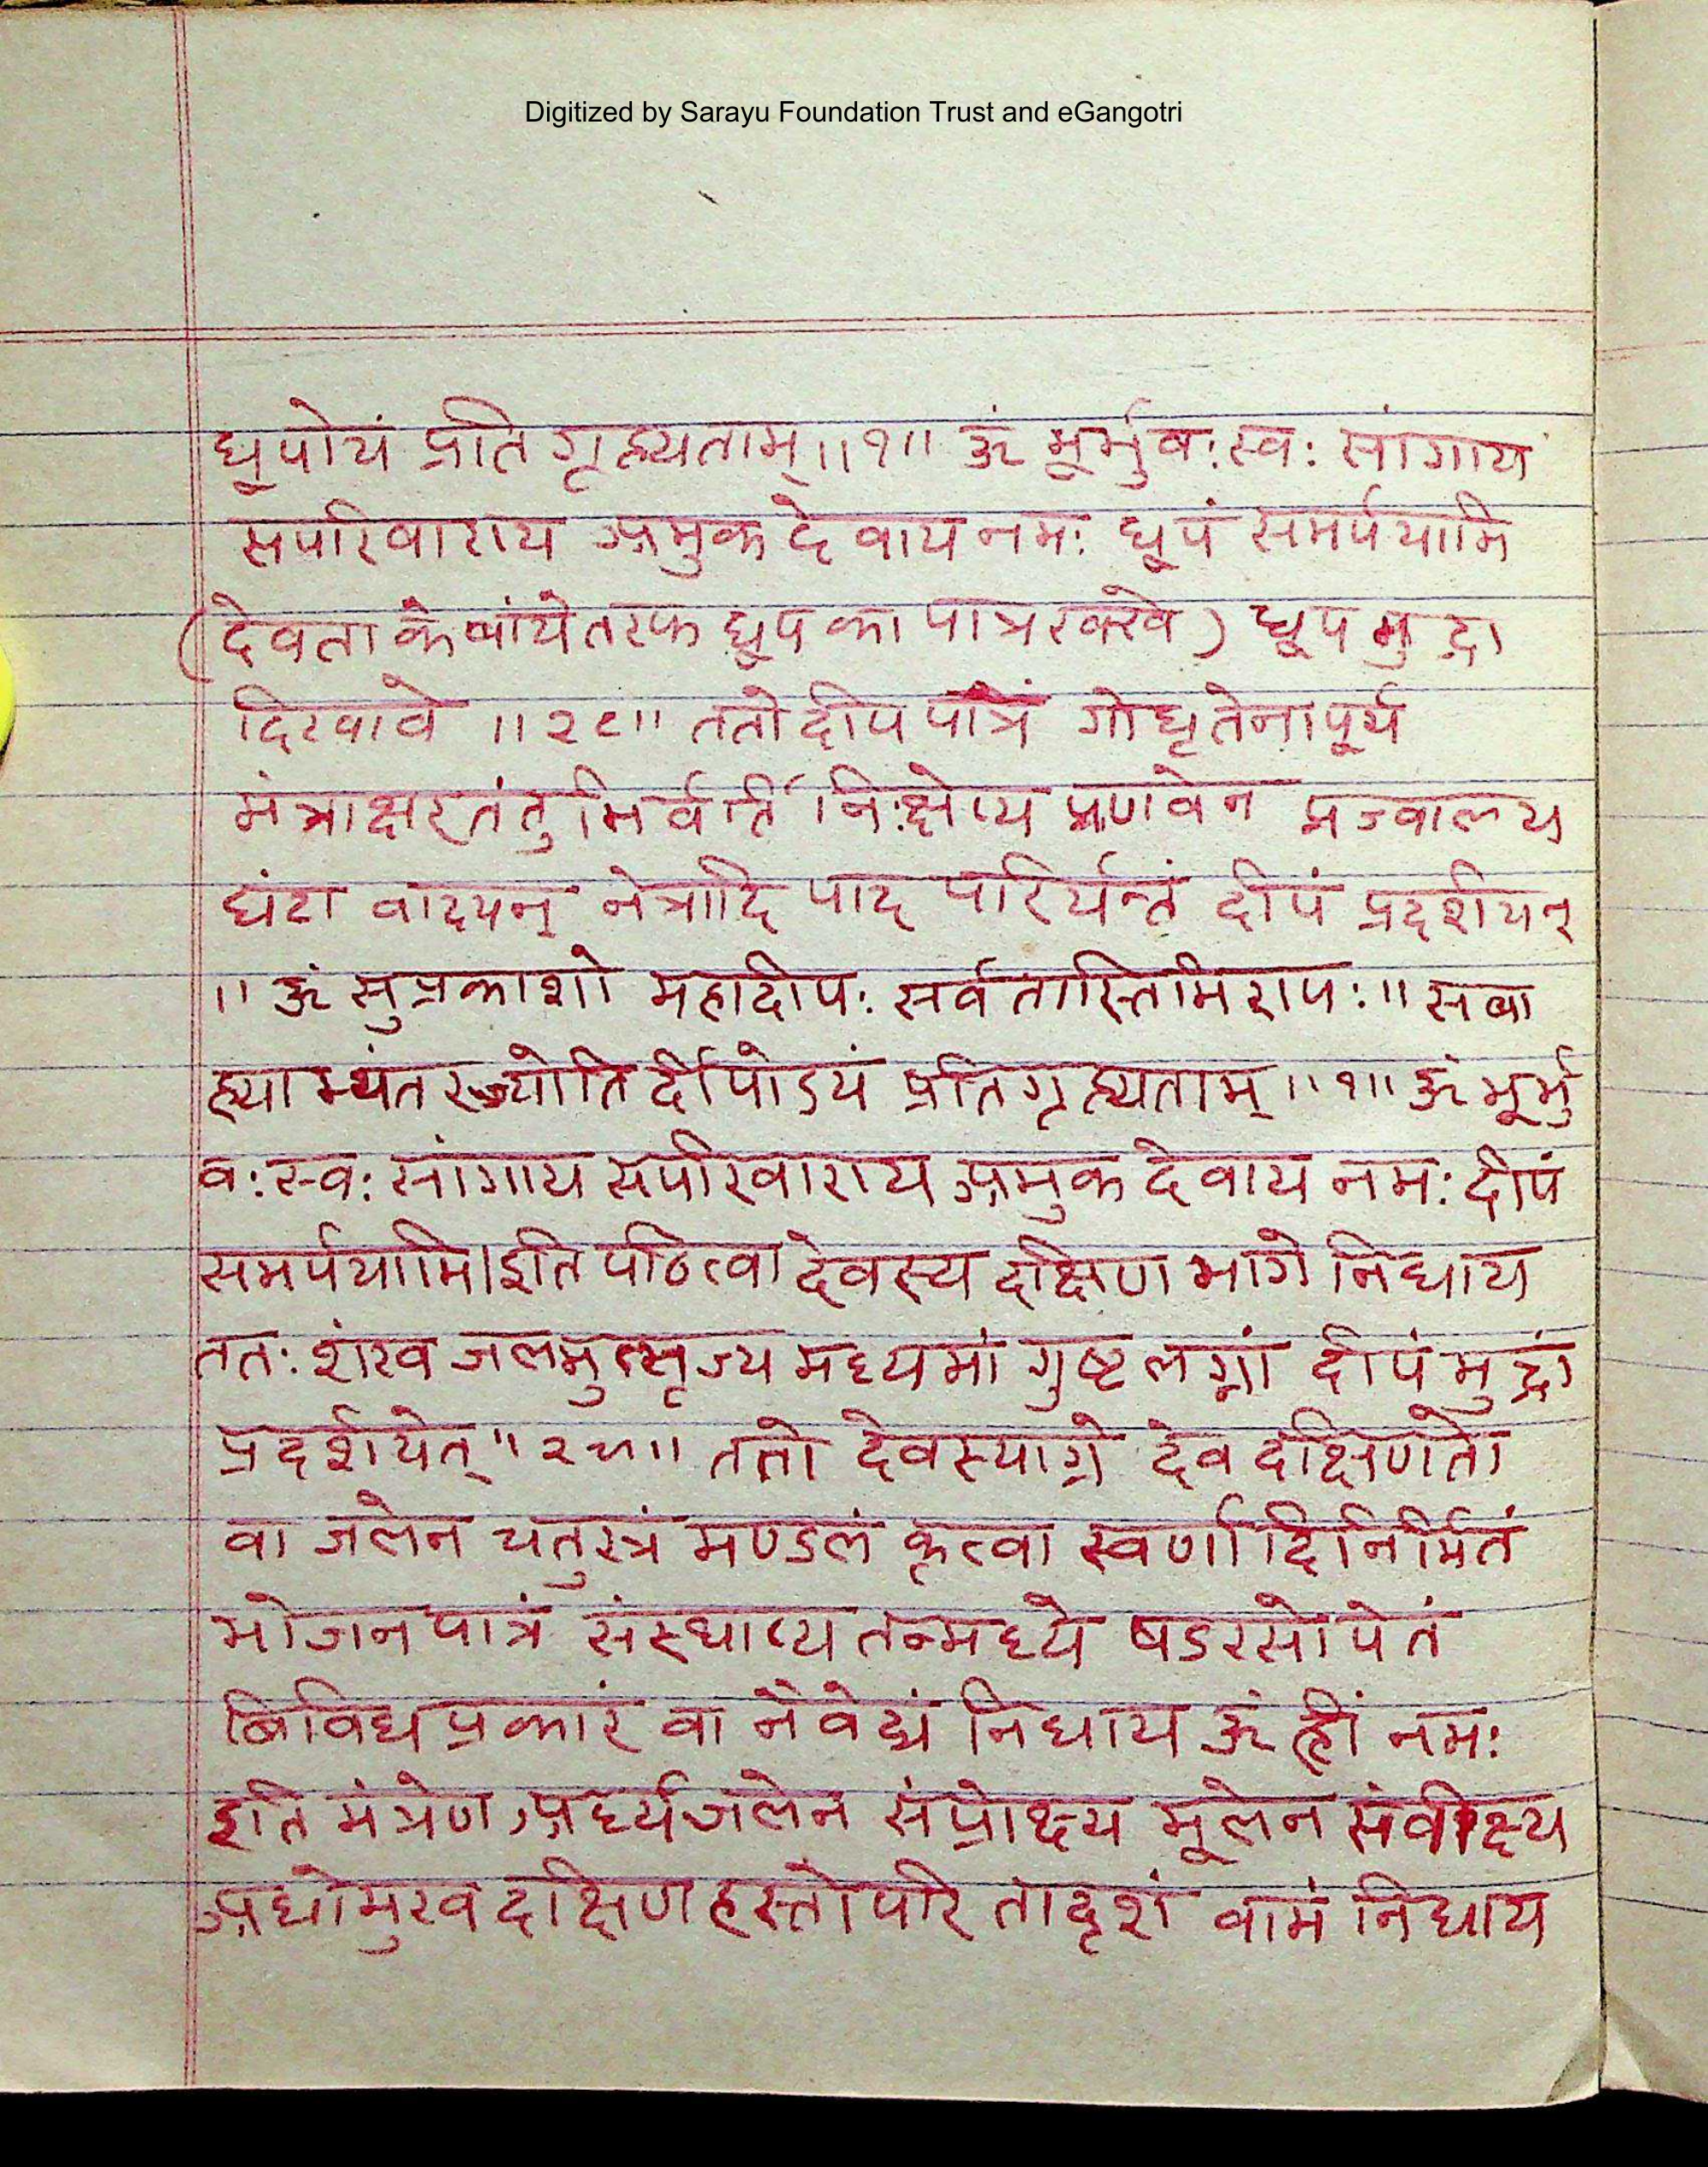 Digitized by Sarayu Foundation Trust and eGangotri
धूपोयं प्रति गृह्यताम्॥१॥ ॐ भूर्भुवः स्वः सांगाय
सपरिवाराय अमुक देवाय नमः धूपं समर्पयामि
(देवता के बांये तरफ धूप का पात्र रक्खे) धूप मुद्रा
दिखावे ॥२८॥ ततो दीप पात्रं गोघृतेनापूर्य
मंत्राक्षर तंतुभिर्वर्तिं निःक्षेप्य प्रणवेन प्रज्वाल्य
घंटा वादयन् नेत्रादि पाद परिर्यन्तं दीपं प्रदर्शयन्
॥ ॐ सुप्रकाशो महादीपः सर्वतास्तिमिरापः॥ सबा
ह्याभ्यंतरज्योति र्दीपोऽयं प्रतिगृह्यताम्॥१॥ ॐ भूर्भु
वः स्वः सांगाय सपरिवाराय अमुक देवाय नमः दीपं
समर्पयामि। इति पठित्वा देवस्य दक्षिण भागे निधाय
ततः शंख जलमुत्सृज्य मध्यमां गुष्ट लग्नां दीपं मुद्रां
प्रदर्शयेत् ॥२९॥ ततो देवस्याग्रे देव दक्षिणतो
वा जलेन चतुस्त्रं मण्डलं कृत्वा स्वर्णादिनिर्मितं
भोजन पात्रं संस्थाप्य तन्मध्ये षडरसोपेतं
बिविध प्रकारं वा नैवेद्यं निधाय ॐ ह्रीं नमः
इति मंत्रेण अर्घ्यजलेन संप्रोक्ष्य मूलेन संवीक्ष्य
अधोमुख दक्षिण हस्तोपरि तादृशं वामं निधाय